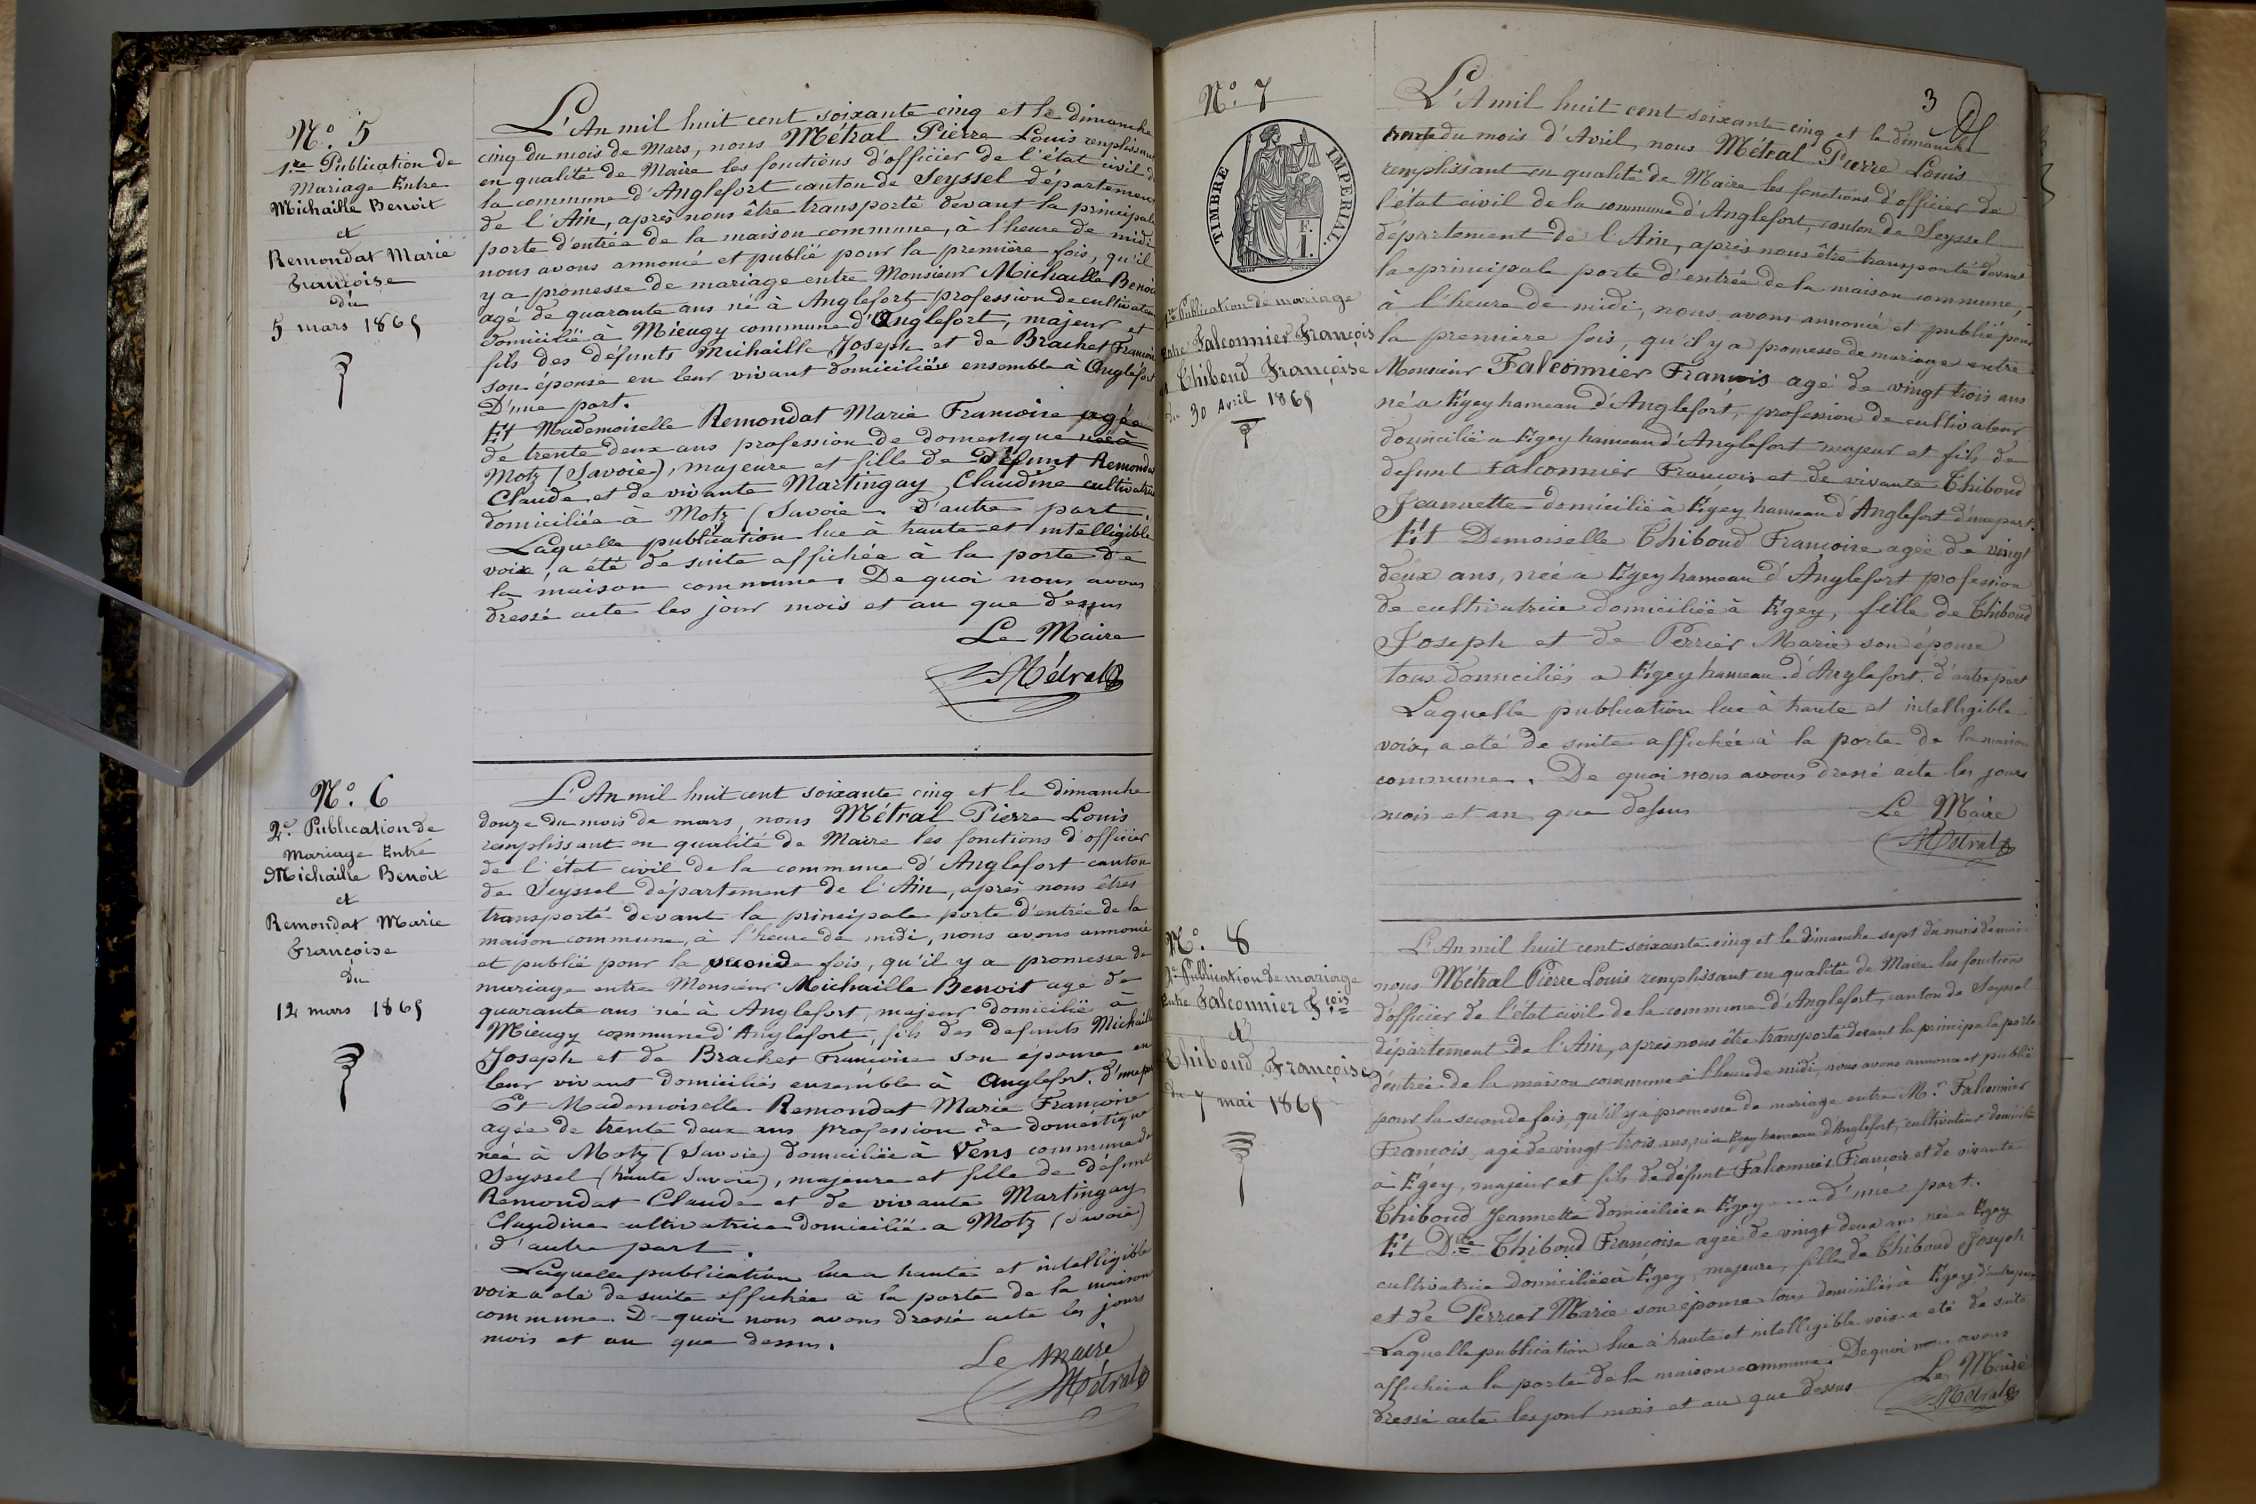 N.o 5
1.re Publication de
Mariage Entre
Michaille Benoit
et
Remondat Marie
Françoise
du
5 mars 1865
L'An mil huit cent soixante cinq et le dimanche
cinq du mois de Mars, nous Métral Pierre Louis remplissant
en qualité de Maire les fonctions d'officier de l'état civil de
la commune d'Anglefort canton de Seyssel département
de l'Ain, après nous être transporté devant la principale
porte d'entrée de la maison commune, à l'heure de midi
nous avons annoncé et publié pour la première fois, qu'il
y a promesse de mariage entre Monsieur Michaille Benoit
agé de quarante ans né à Anglefort profession de cultivateur
domicilié à Mieugy commune d'Anglefort, majeur et
fils des défunts Michaille Joseph et de Brachet Françoise
son épouse en leur vivant domiciliés ensemble à Anglefort
D'une part.
Et Mademoiselle Remondat Marie Francoise agée
de trente deux ans profession de domestique née à
Motz (Savoie), majeure et fille de défunt Remondat
Claude et de vivante Martingay Claudine cultivatrice
domiciliée à Motz (Savoie. D'autre part.
Laquelle publication lue à haute et intelligible
voix, a été de suite affichée à la porte de
la maison commune. De quoi nous avons
dressé acte les jour mois et an que dessus
Le Maire
Métral
N.o 6
2.e Publication de
Mariage Entre
Michaille Benoit
et
Remondat Marie
Françoise
du
12 mars 1865
L'An mil huit cent soixante cinq et le dimanche
douze du mois de mars, nous Métral Pierre Louis
remplissant en qualité de Maire les fonctions d'officier
de l'état civil de la commune d'Anglefort canton
de Seyssel département de l'Ain, après nous êtres
transporté devant la principale porte d'entrée de la
maison commune, à l'heure de midi, nous avons annoncé
et publié pour la seconde fois, qu'il y a promesse de
mariage entre Monsieur Michaille Benoit agé de
quarante ans né à Anglefort, majeur domicilié à
Mieugy commune d'Anglefort, fils des defunts Michaille
Joseph et de Brachet Francoise son épouse en
leur vivant domiciliés ensemble à Anglefort. d'une part
Et Mademoiselle Remondat Marie Francoise
agée de trente deux ans profession de domestique
née à Motz (Savoie) domiciliée à Vens commune de
Seyssel (haute Savoie), majeure et fille de défunt
Remondat Claude et de vivante Martingay
Claudine cultivatrice domicilié a Motz (Savoie)
d'autre part.
Laquelle publication lue a haute et intelligible
voix a été de suite affichée à la porte de la maison
commune. De quoi nous avons dressé acte les jours
mois et an que dessus.
Le Maire
Métral
N.o 7
TIMBRE IMPÉRIAL.
1 F.
1.re Publication de mariage
Entre Falconnier François
et Thiboud Françoise
du 30 Avril 1865
3
L'A mil huit cent soixante cinq et le dimanche
trente du mois d'Avril, nous Métral Pierre Louis
remplissant en qualité de Maire les fonctions d'officier de
l'état civil de la commune d'Anglefort, canton de Seyssel
département de l'Ain, après nous être transporté devant
la principale porte d'entrée de la maison commune,
à l'heure de midi, nous avons annoncé et publié pour
la première fois, qu'il y a promesse de mariage entre
Monsieur Falconnier Francois agé de vingt trois ans
né a Egey hameau d'Anglefort, profession de cultivateur
domicilié a Egey hameau d'Anglefort majeur et fils de
defunt Falconnier Francois et de vivante Thiboud
Jeannette domicilié à Egey hameau d'Anglefort d'une part.
Et Demoiselle Thiboud Francoise agée de vingt
deux ans, née a Egey hameau d'Anglefort profession
de cultivatrice domiciliée à Egey, fille de Thiboud
Joseph et de Perrier Marie son épouse
tous domiciliés a Egey hameau d'Anglefort. d'autre part
Laquelle publication lue à haute et intelligible
voix, a été de suite affichée à la porte de la maison
commune. De quoi nous avons dressé acte les jours
mois et an que dessus
Le Maire
Métral
N.o 8
2.e Publication de mariage
Entre Falconnier F.cois
et
Thiboud Françoise
du 7 mai 1865
L'An mil huit cent soixante cinq et le dimanche sept du mois de mai
nous Métral Pierre Louis remplissant en qualité de Maire les fonctions
d'officier de l'état civil de la commune d'Anglefort, canton de Seyssel
département de l'Ain, après nous être transporté devant la principale porte
d'entrée de la maison commune à l'heure de midi, nous avons annoncé et publié
pour la seconde fois, qu'il y a promesse de mariage entre M.r Falconnier
Francois, agé de vingt trois ans, né a Egey hameau d'Anglefort, cultivateur domicilié
à Egey, majeur et fils de défunt Falconnier François et de vivante
Thiboud Jeannette domiciliée a Egey ... d'une part.
Et D.lle Thiboud Françoise agée de vingt deux ans née a Egey
cultivatrice domiciliée à Egey, majeure, fille de Thiboud Joseph
et de Perrier Marie son épouse tous domiciliés à Egey d'autre part
Laquelle publication lue à haute et intelligible voix a été de suite
affichée a la porte de la maison commune. De quoi nous avons
dressé acte les jour mois et an que dessus
Le Maire
Métral